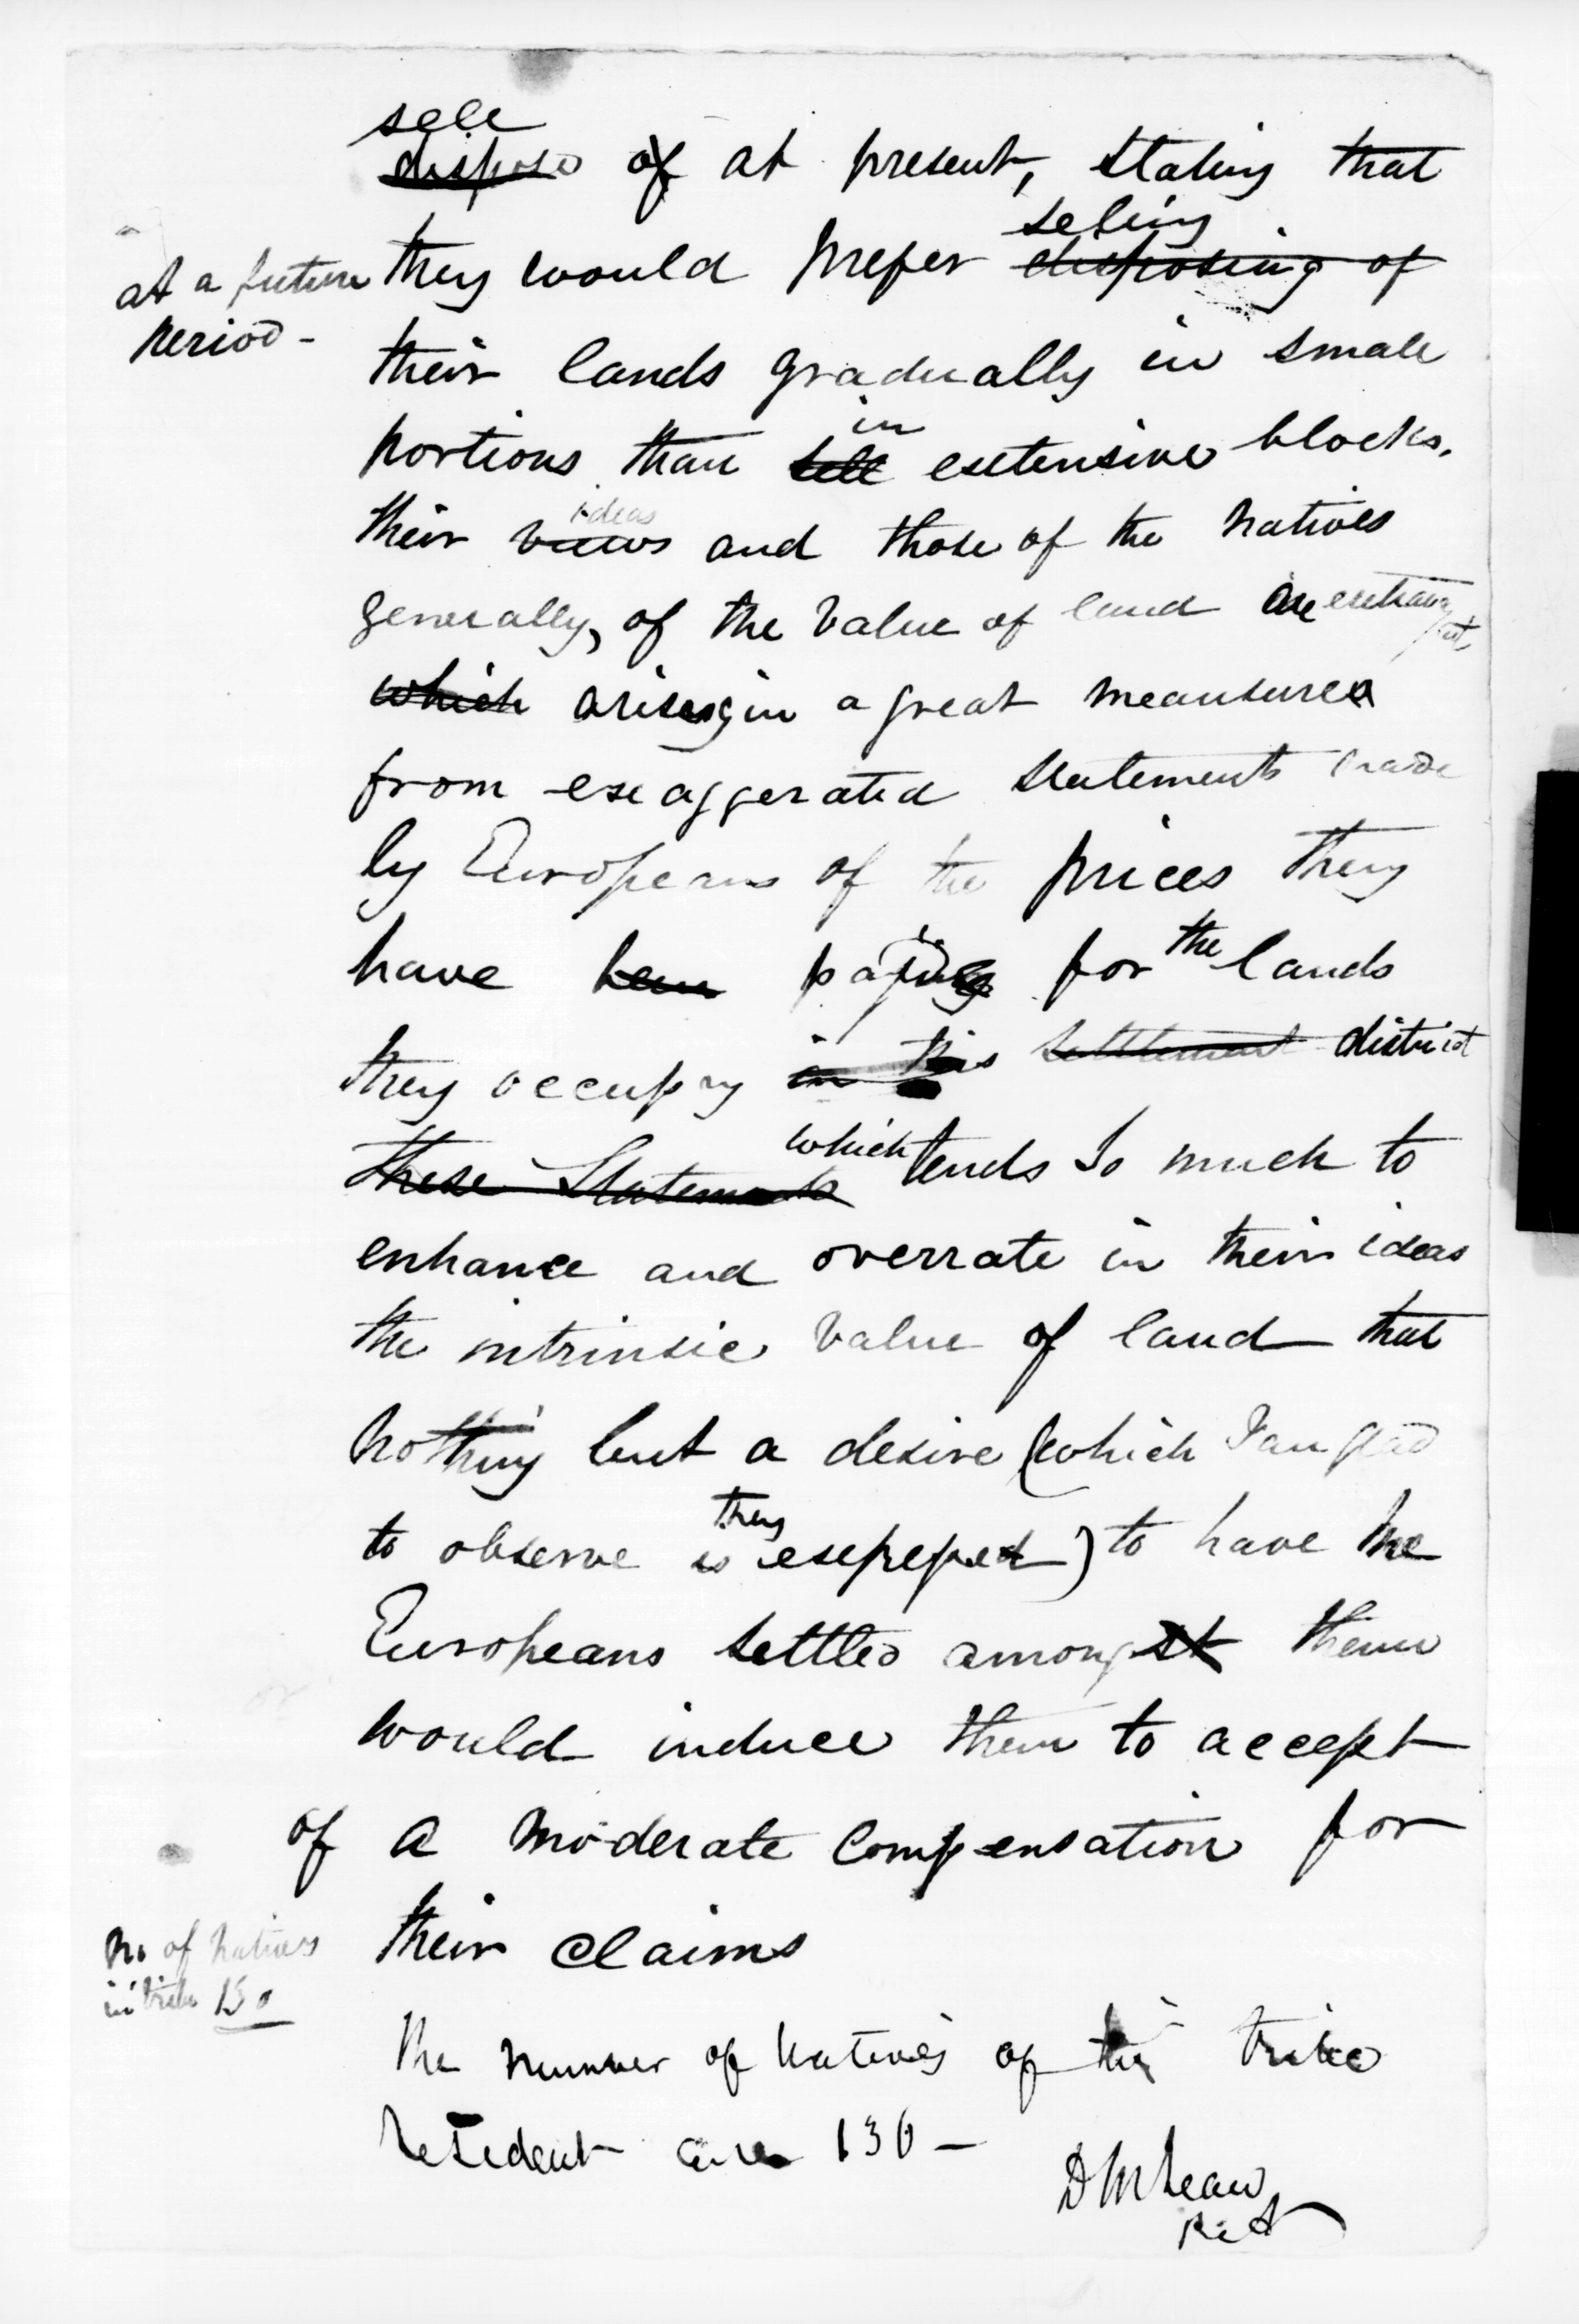 sell
dispose of at present, stating that
selling
at a future they would prefer disposing of
period -
their lands gradually in small
in
portions than sell extensive blocks.
ideas
their views and those of the Natives
generally, of the value of land are extravagant
which arising in a great meansure
from exaggerated statements made
by Europeans of the prices they
have been paying for the lands
they occupy in this settlement district
which
these Statements tends so much to
enhance and overrate in their ideas
the intrinsic value of land that
nothing but a desire (which I am glad
they
to observe is expeped) to have the
Europeans settled amongst them
would induce them to accept
of a moderate compensation for
their claims
No of Natives
in tribe 150
The number of Natives of this tribe
resident are 130 -
D McLean